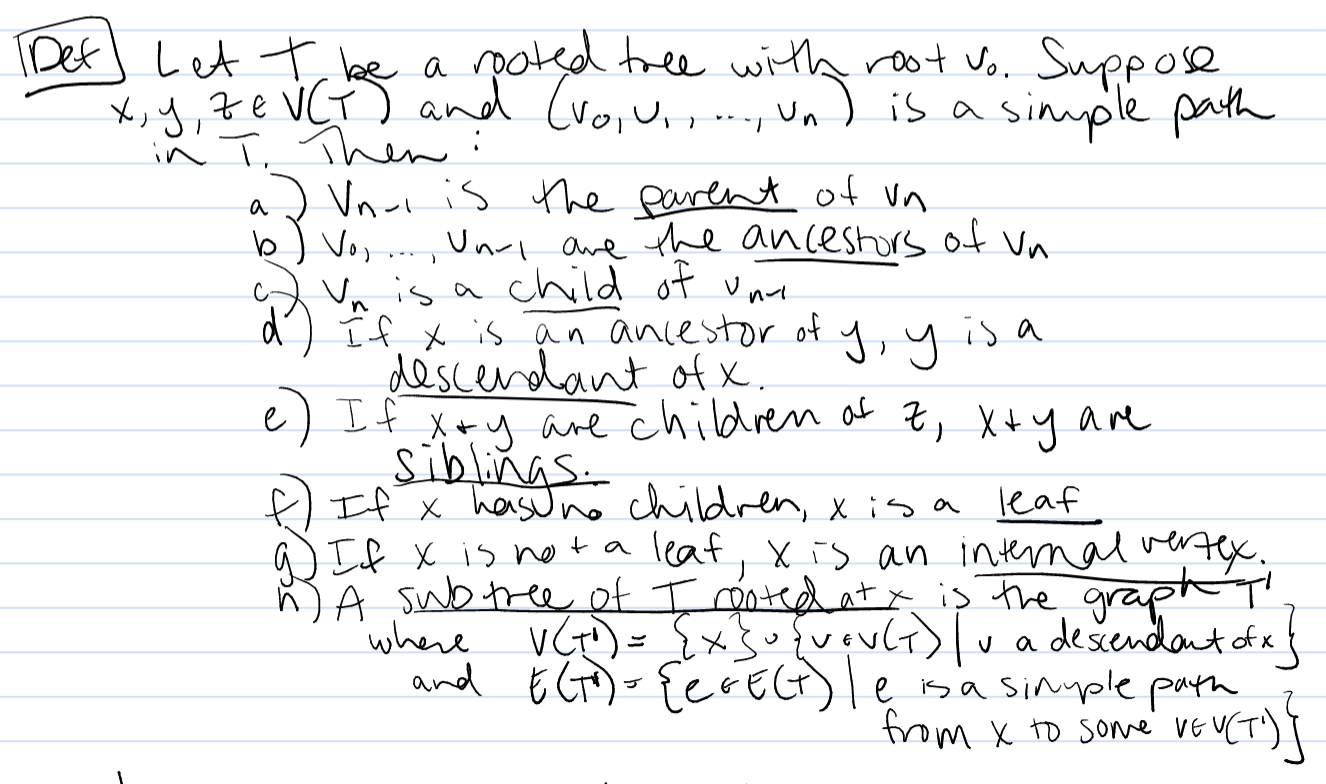 Def Let T be a rooted tree with root v₀. Suppose
x, y, z ∈ V(T) and (v₀, v₁, ..., vₙ) is a simple path
in T. Then:
a) vₙ₋₁ is the parent of vₙ
b) v₀, ..., vₙ₋₁ are the ancestors of vₙ
c) vₙ is a child of vₙ₋₁
d) If x is an ancestor of y, y is a
descendant of x.
e) If x + y are children of z, x + y are
siblings.
f) If x has no children, x is a leaf
g) If x is not a leaf, x is an internal vertex.
h) A subtree of T rooted at x is the graph T'
where V(T') = {x} ∪ {v ∈ V(T) | v a descendant of x}
and E(T') = {e ∈ E(T) | e is a simple path
from x to some v ∈ V(T')}